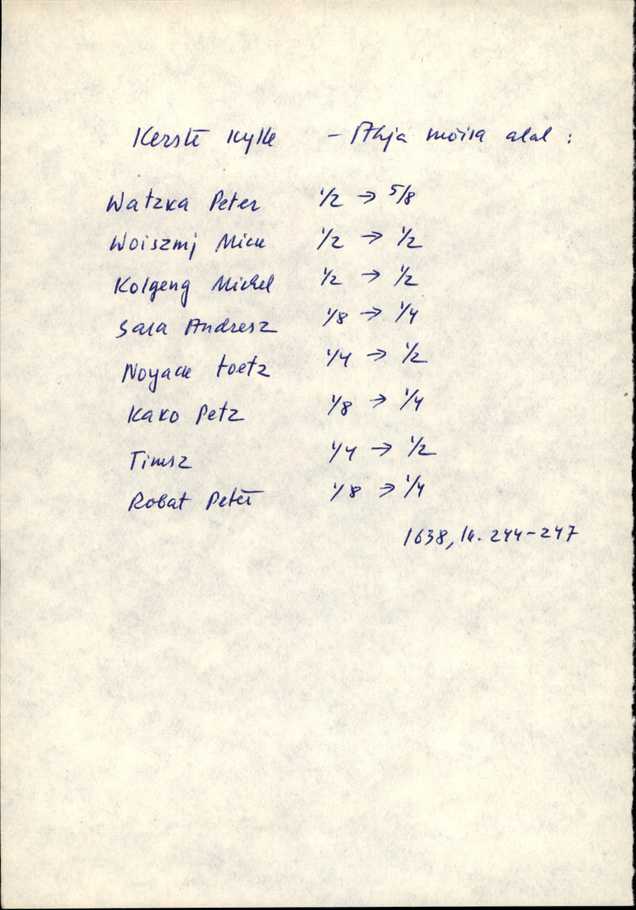 Kerstē Kylle - Ahja mõisa alal :
Watzka Peter 1/2 → 5/8
Woiszmj Mick 1/2 → 1/2
Kolgeng Michel 1/2 → 1/2
Sara Andresz 1/8 → 1/4
Noyack toetz 1/4 → 1/2
Kako Petz 1/8 → 1/4
Timsz 1/4 → 1/2
Robat Petēr 1/8 → 1/4
1638, lk. 244-247